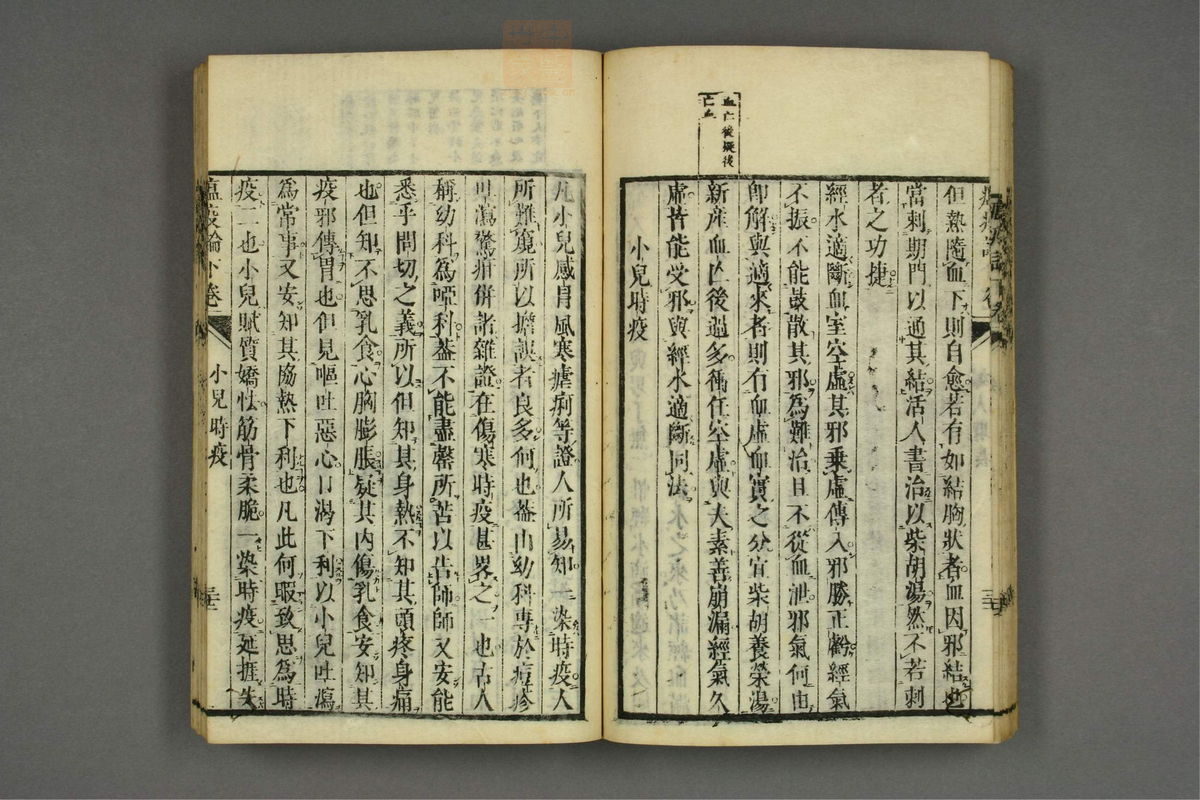 血亡後疑後
亡血
但熱隨血下則自愈若有如結胸狀者血因邪結也
當刺期門以通其結活人書治以柴胡湯然不若刺
者之功捷
經水適斷血室空虛其邪乘虛傳入邪勝正虧經氣
不振不能鼓散其邪為難治且不從血泄邪氣何由
即解與適來者則有血虛血實之分宜柴胡養榮湯
新產血亡後過多衝任空虛與夫素善崩漏經氣久
虛皆能受邪與經水適斷同法
小兒時疫
凡小兒感冒風寒瘧痢等證人所易知一染時疫人
所難窺所以擔誤者良多何也蓋由幼科專於痘疹
吐瀉驚疳併諸雜證在傷寒時疫甚畧之一也古人
稱幼科為啞科蓋不能盡罄所苦以告師師又安能
悉乎問切之義所以但知其身熱不知其頭疼身痛
也但知不思乳食心胸膨脹疑其內傷乳食安知其
疫邪傳胃也但見嘔吐惡心口渴下利以小兒吐瀉
為常事又安知其協熱下利也凡此何暇致思為時
疫二也小兒賦質嬌怯筋骨柔脆一染時疫延捱失
瘟疫論下卷
小兒時疫